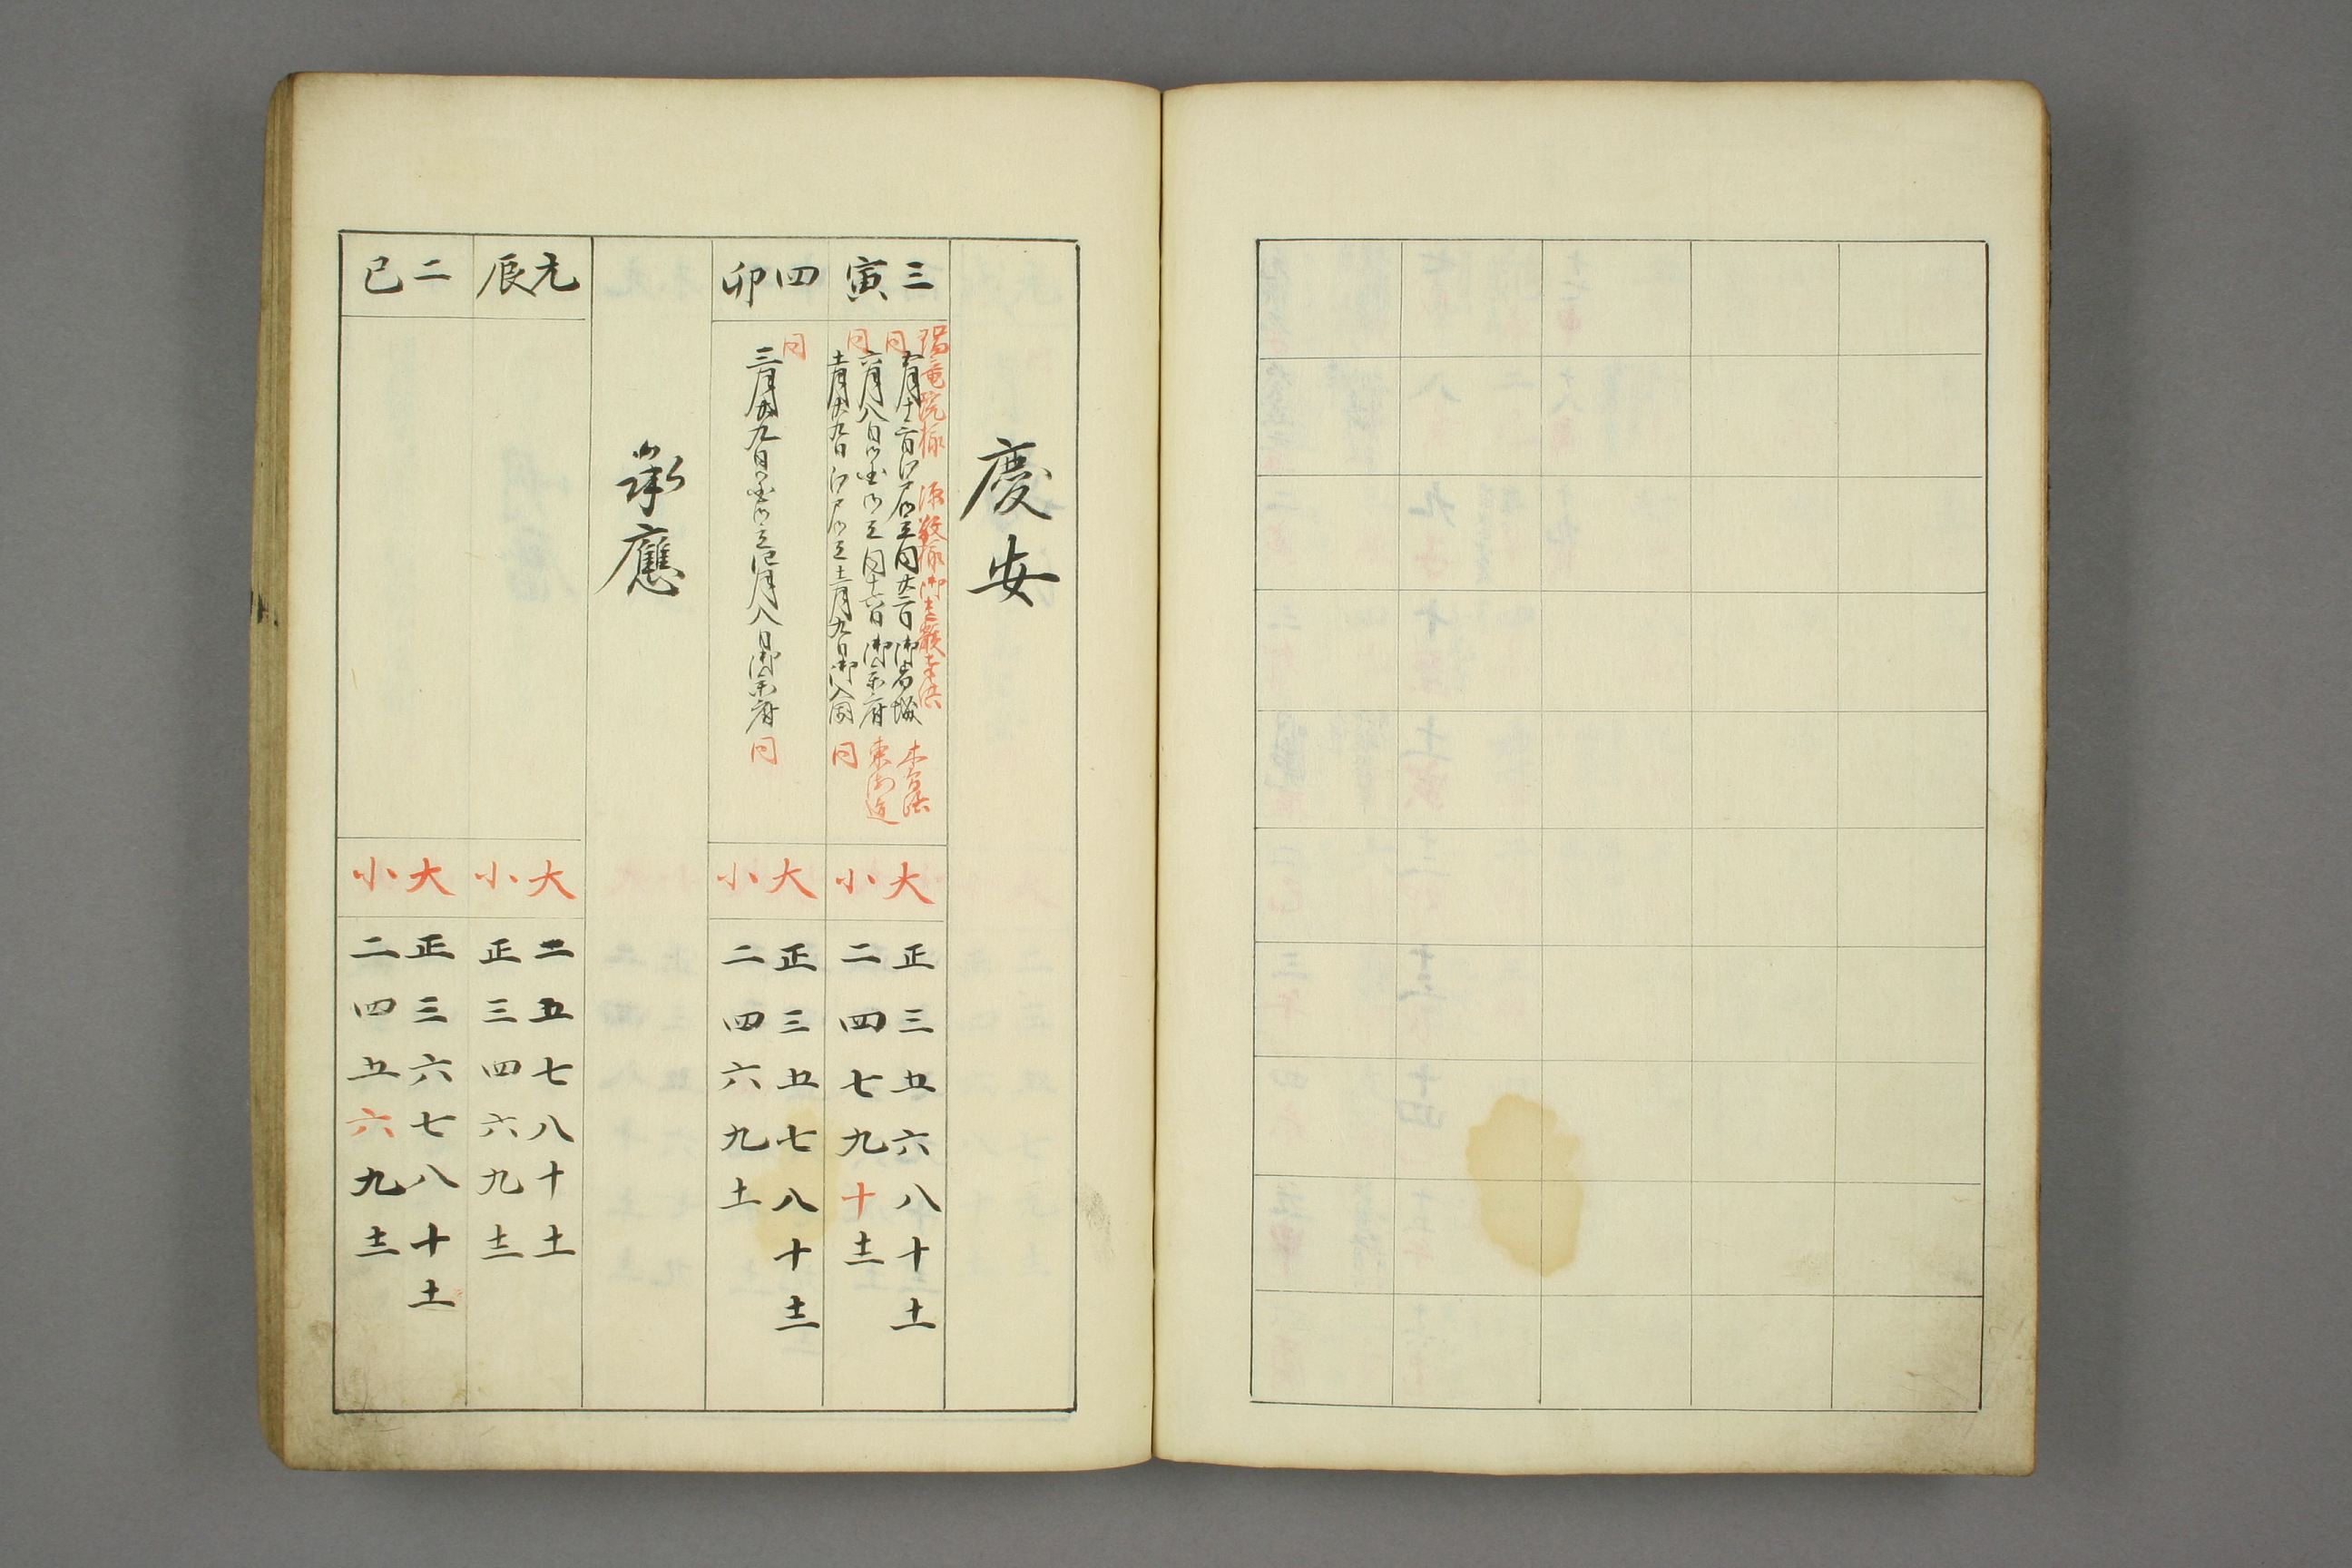 慶安
三寅
瑞竜院様 源敬様御
同 五月十二日江戸御立同廿二日御着城 木曽路
同 六月八日御国御立同十六日御参府 東海道
十一月廿九日江戸御立十二月九日御入国 同
大 正三五六八十十一
小 二四七九十十二
四卯
同
三月廿九日御国御立四月八日御参府 同
大 正三五七八十十二
小 二四六九十一
承應
元辰
大 二五七八十十一
小 正三四六九十二
二巳
大 正三六七八十十一
小 二四五六九十二